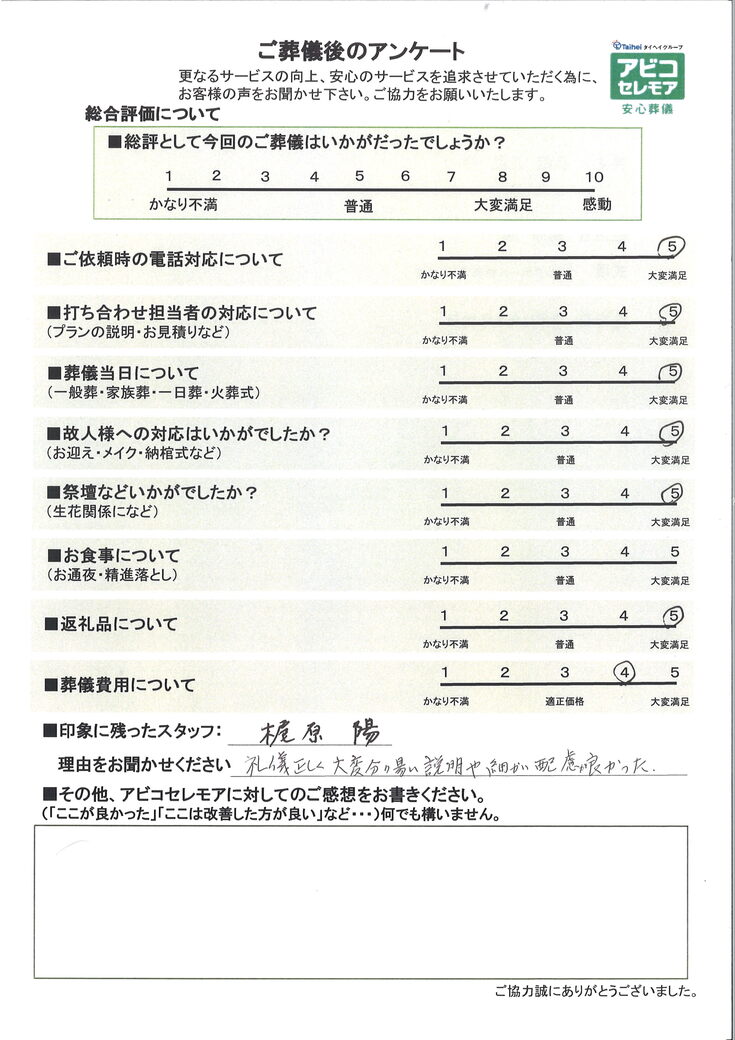 ご葬儀後のアンケート
Taihei タイヘイグループ
アビコ
セレモア
安心葬儀
更なるサービスの向上、安心のサービスを追求させていただく為に、
お客様の声をお聞かせ下さい。ご協力をお願いいたします。
総合評価について
■総評として今回のご葬儀はいかがだったでしょうか？
1 2 3 4 5 6 7 8 9 10
かなり不満 普通 大変満足 感動
■ご依頼時の電話対応について
1 2 3 4 5
かなり不満 普通 大変満足
■打ち合わせ担当者の対応について
(プランの説明・お見積りなど)
1 2 3 4 5
かなり不満 普通 大変満足
■葬儀当日について
(一般葬・家族葬・一日葬・火葬式)
1 2 3 4 5
かなり不満 普通 大変満足
■故人様への対応はいかがでしたか？
(お迎え・メイク・納棺式など)
1 2 3 4 5
かなり不満 普通 大変満足
■祭壇などいかがでしたか？
(生花関係になど)
1 2 3 4 5
かなり不満 普通 大変満足
■お食事について
(お通夜・精進落とし)
1 2 3 4 5
かなり不満 普通 大変満足
■返礼品について
1 2 3 4 5
かなり不満 普通 大変満足
■葬儀費用について
1 2 3 4 5
かなり不満 適正価格 大変満足
■印象に残ったスタッフ： 梶原 陽
理由をお聞かせください 礼儀正しく大変分り易い説明や細かい配慮が良かった.
■その他、アビコセレモアに対してのご感想をお書きください。
(「ここが良かった」「ここは改善した方が良い」など・・・)何でも構いません。
ご協力誠にありがとうございました。